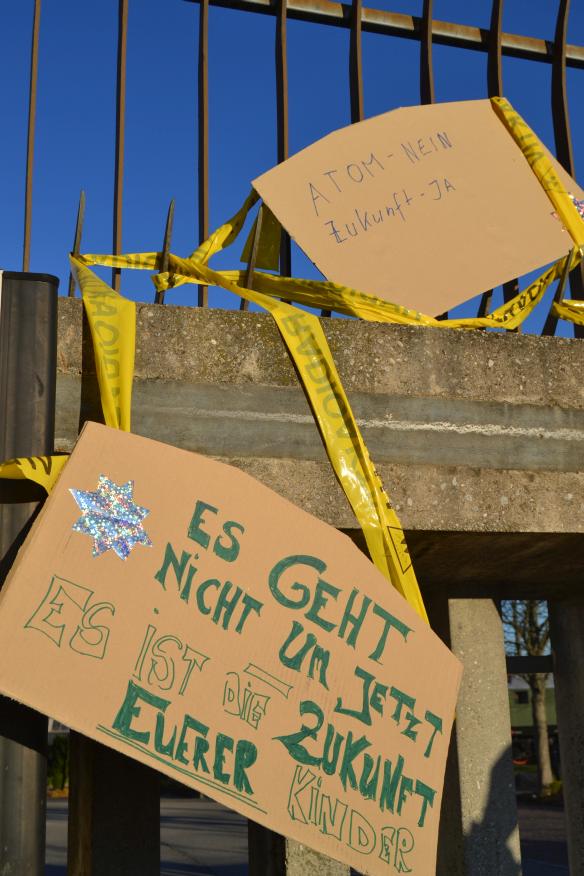 ATOM-NEIN
Zukunft-JA
ES GEHT
NICHT UM JETZT
ES IST DIE ZUKUNFT
EUERER KINDER